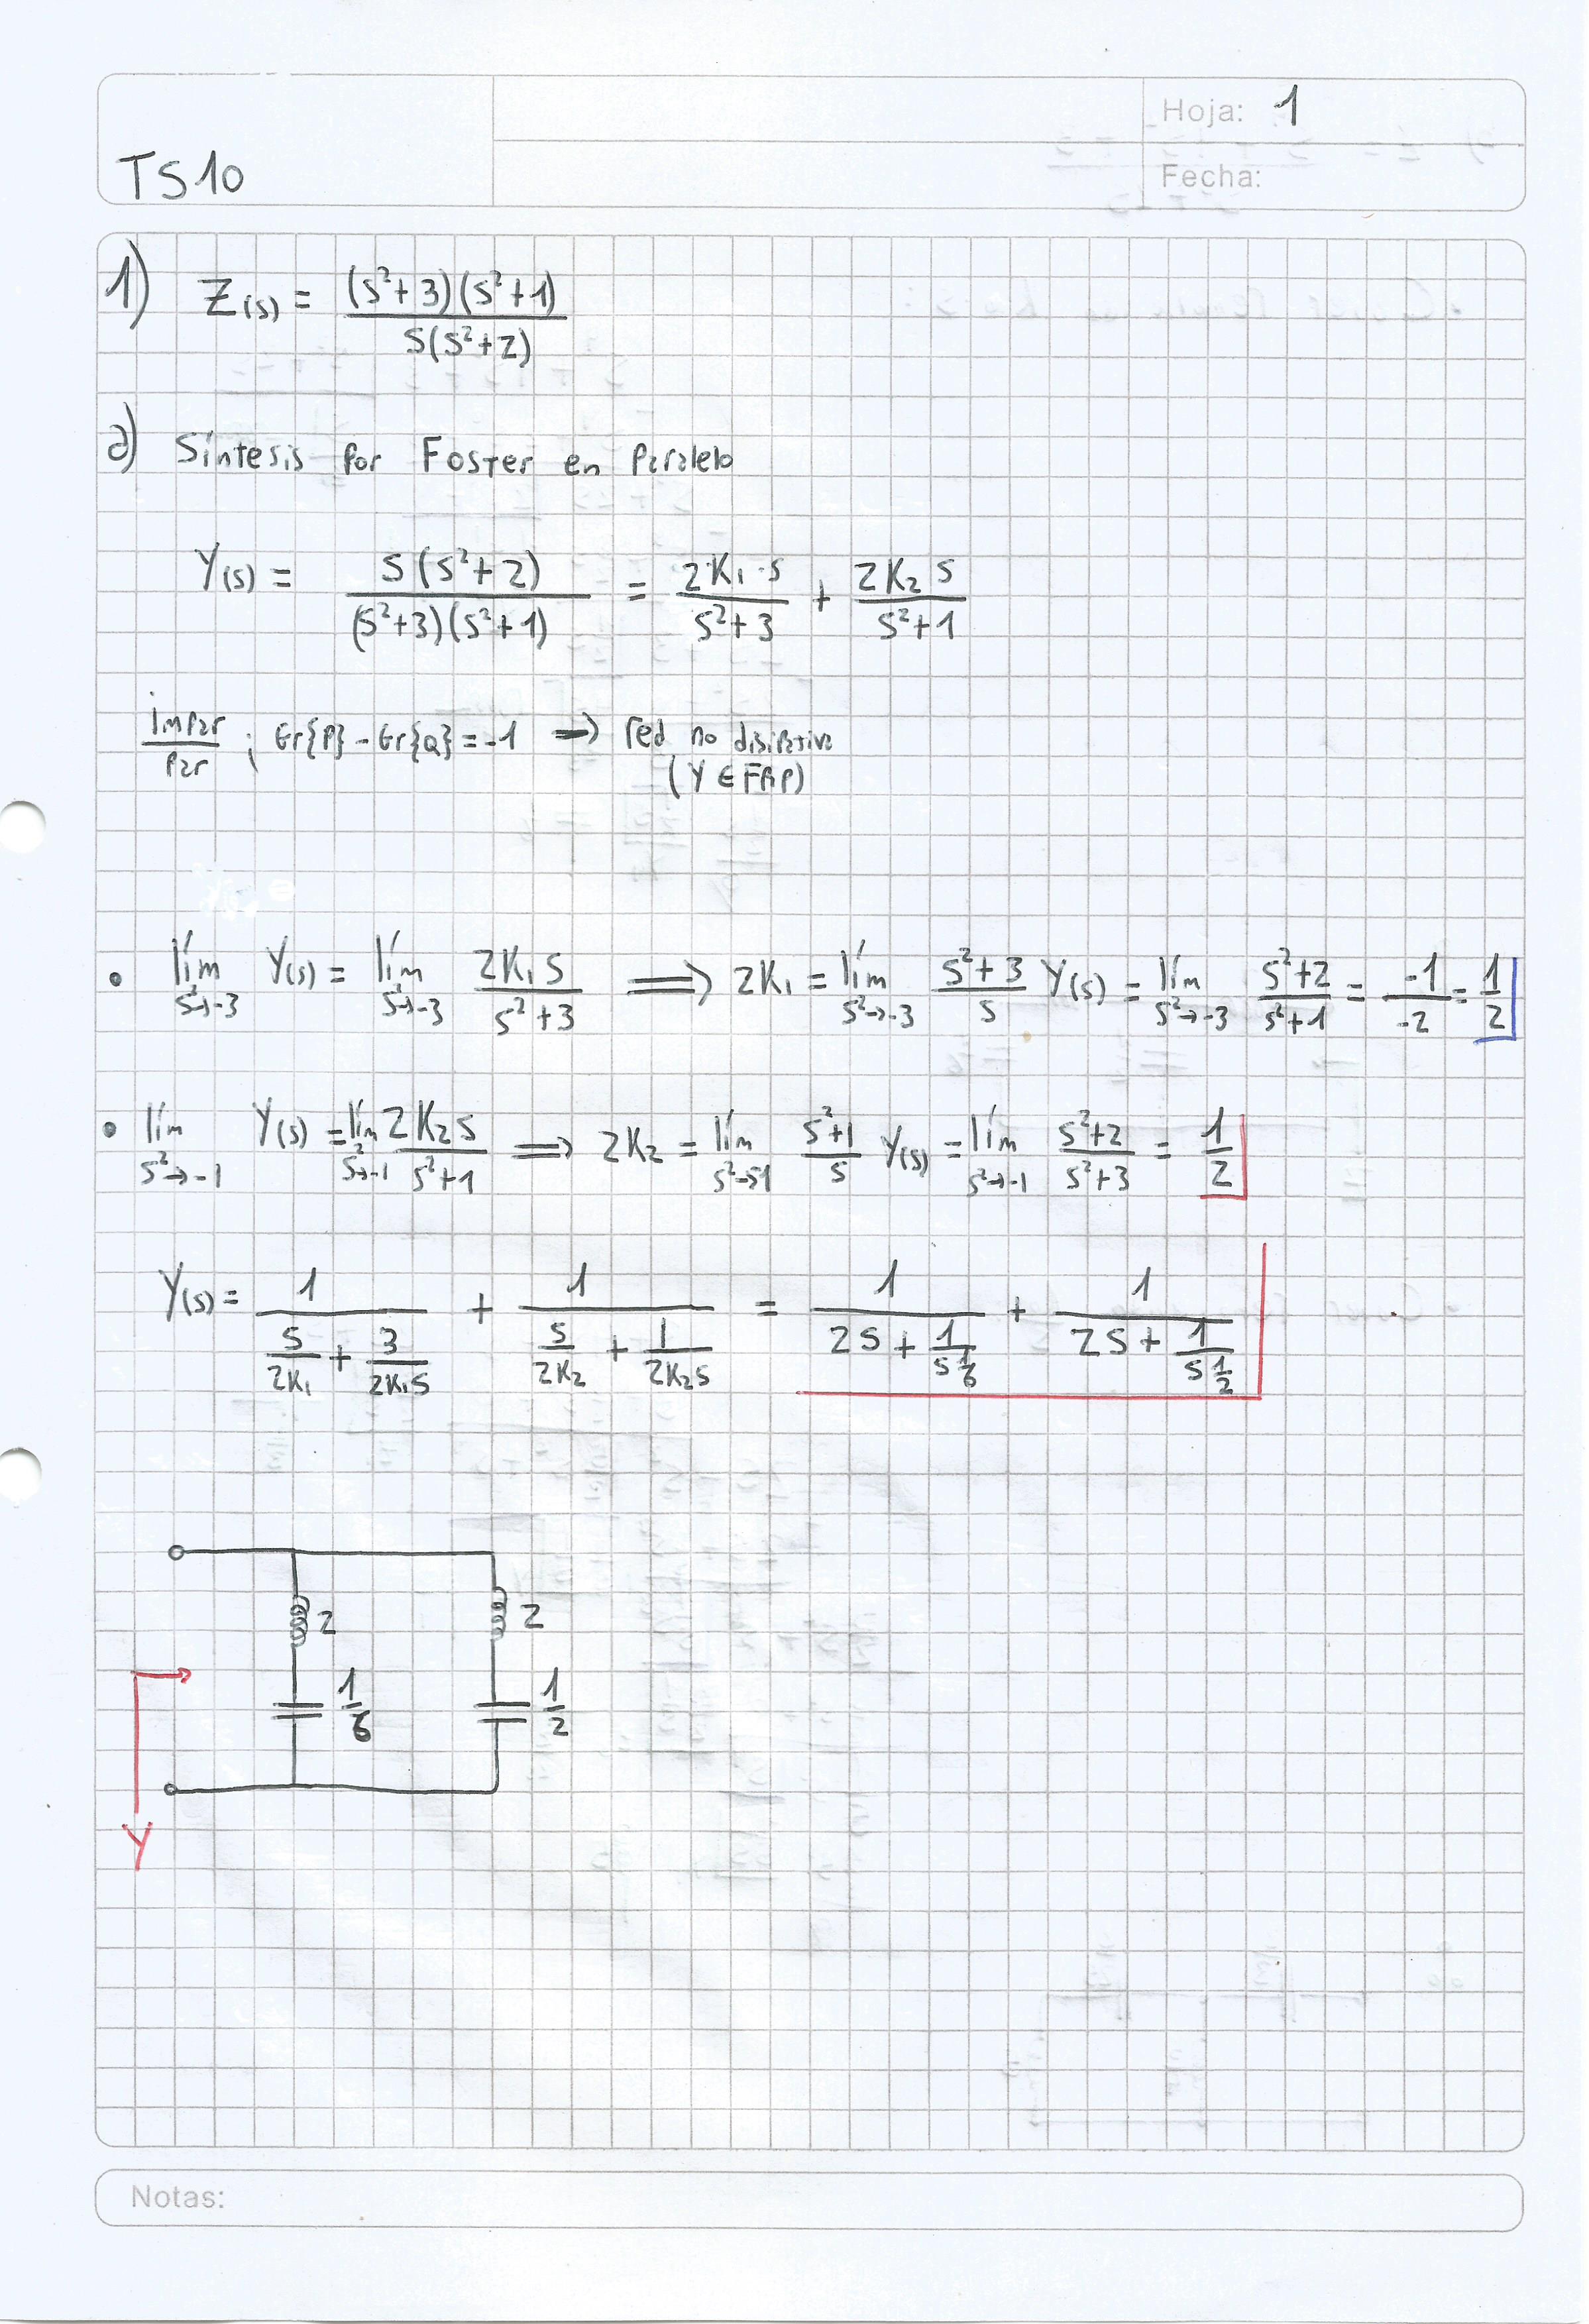 Hoja: 1
TS10
Fecha:
1) Z(s) = (s²+3)(s²+1) / s(s²+2)
a) Síntesis por Foster en paralelo
Y(s) = s(s²+2) / (s²+3)(s²+1) = 2K₁·s / s²+3 + 2K₂s / s²+1
impar / par ; Gr{P} - Gr{Q} = -1 ⟹ red no disipativa
(Y ∈ FRP)
• lím s²→-3 Y(s) = lím s²→-3 2K₁s / s²+3 ⟹ 2K₁ = lím s²→-3 s²+3 / s Y(s) = lím s²→-3 s²+2 / s²+1 = -1 / -2 = 1/2
• lím s²→-1 Y(s) = lím s²→-1 2K₂s / s²+1 ⟹ 2K₂ = lím s²+1 / s Y(s) = lím s²→-1 s²+2 / s²+3 = 1/2
Y(s) = 1 / (s/2K₁ + 3/2K₁s) + 1 / (s/2K₂ + 1/2K₂s) = 1 / (2s + 1/(s 1/6)) + 1 / (2s + 1/(s 1/2))
2 2
1/6 1/2
Y
Notas: